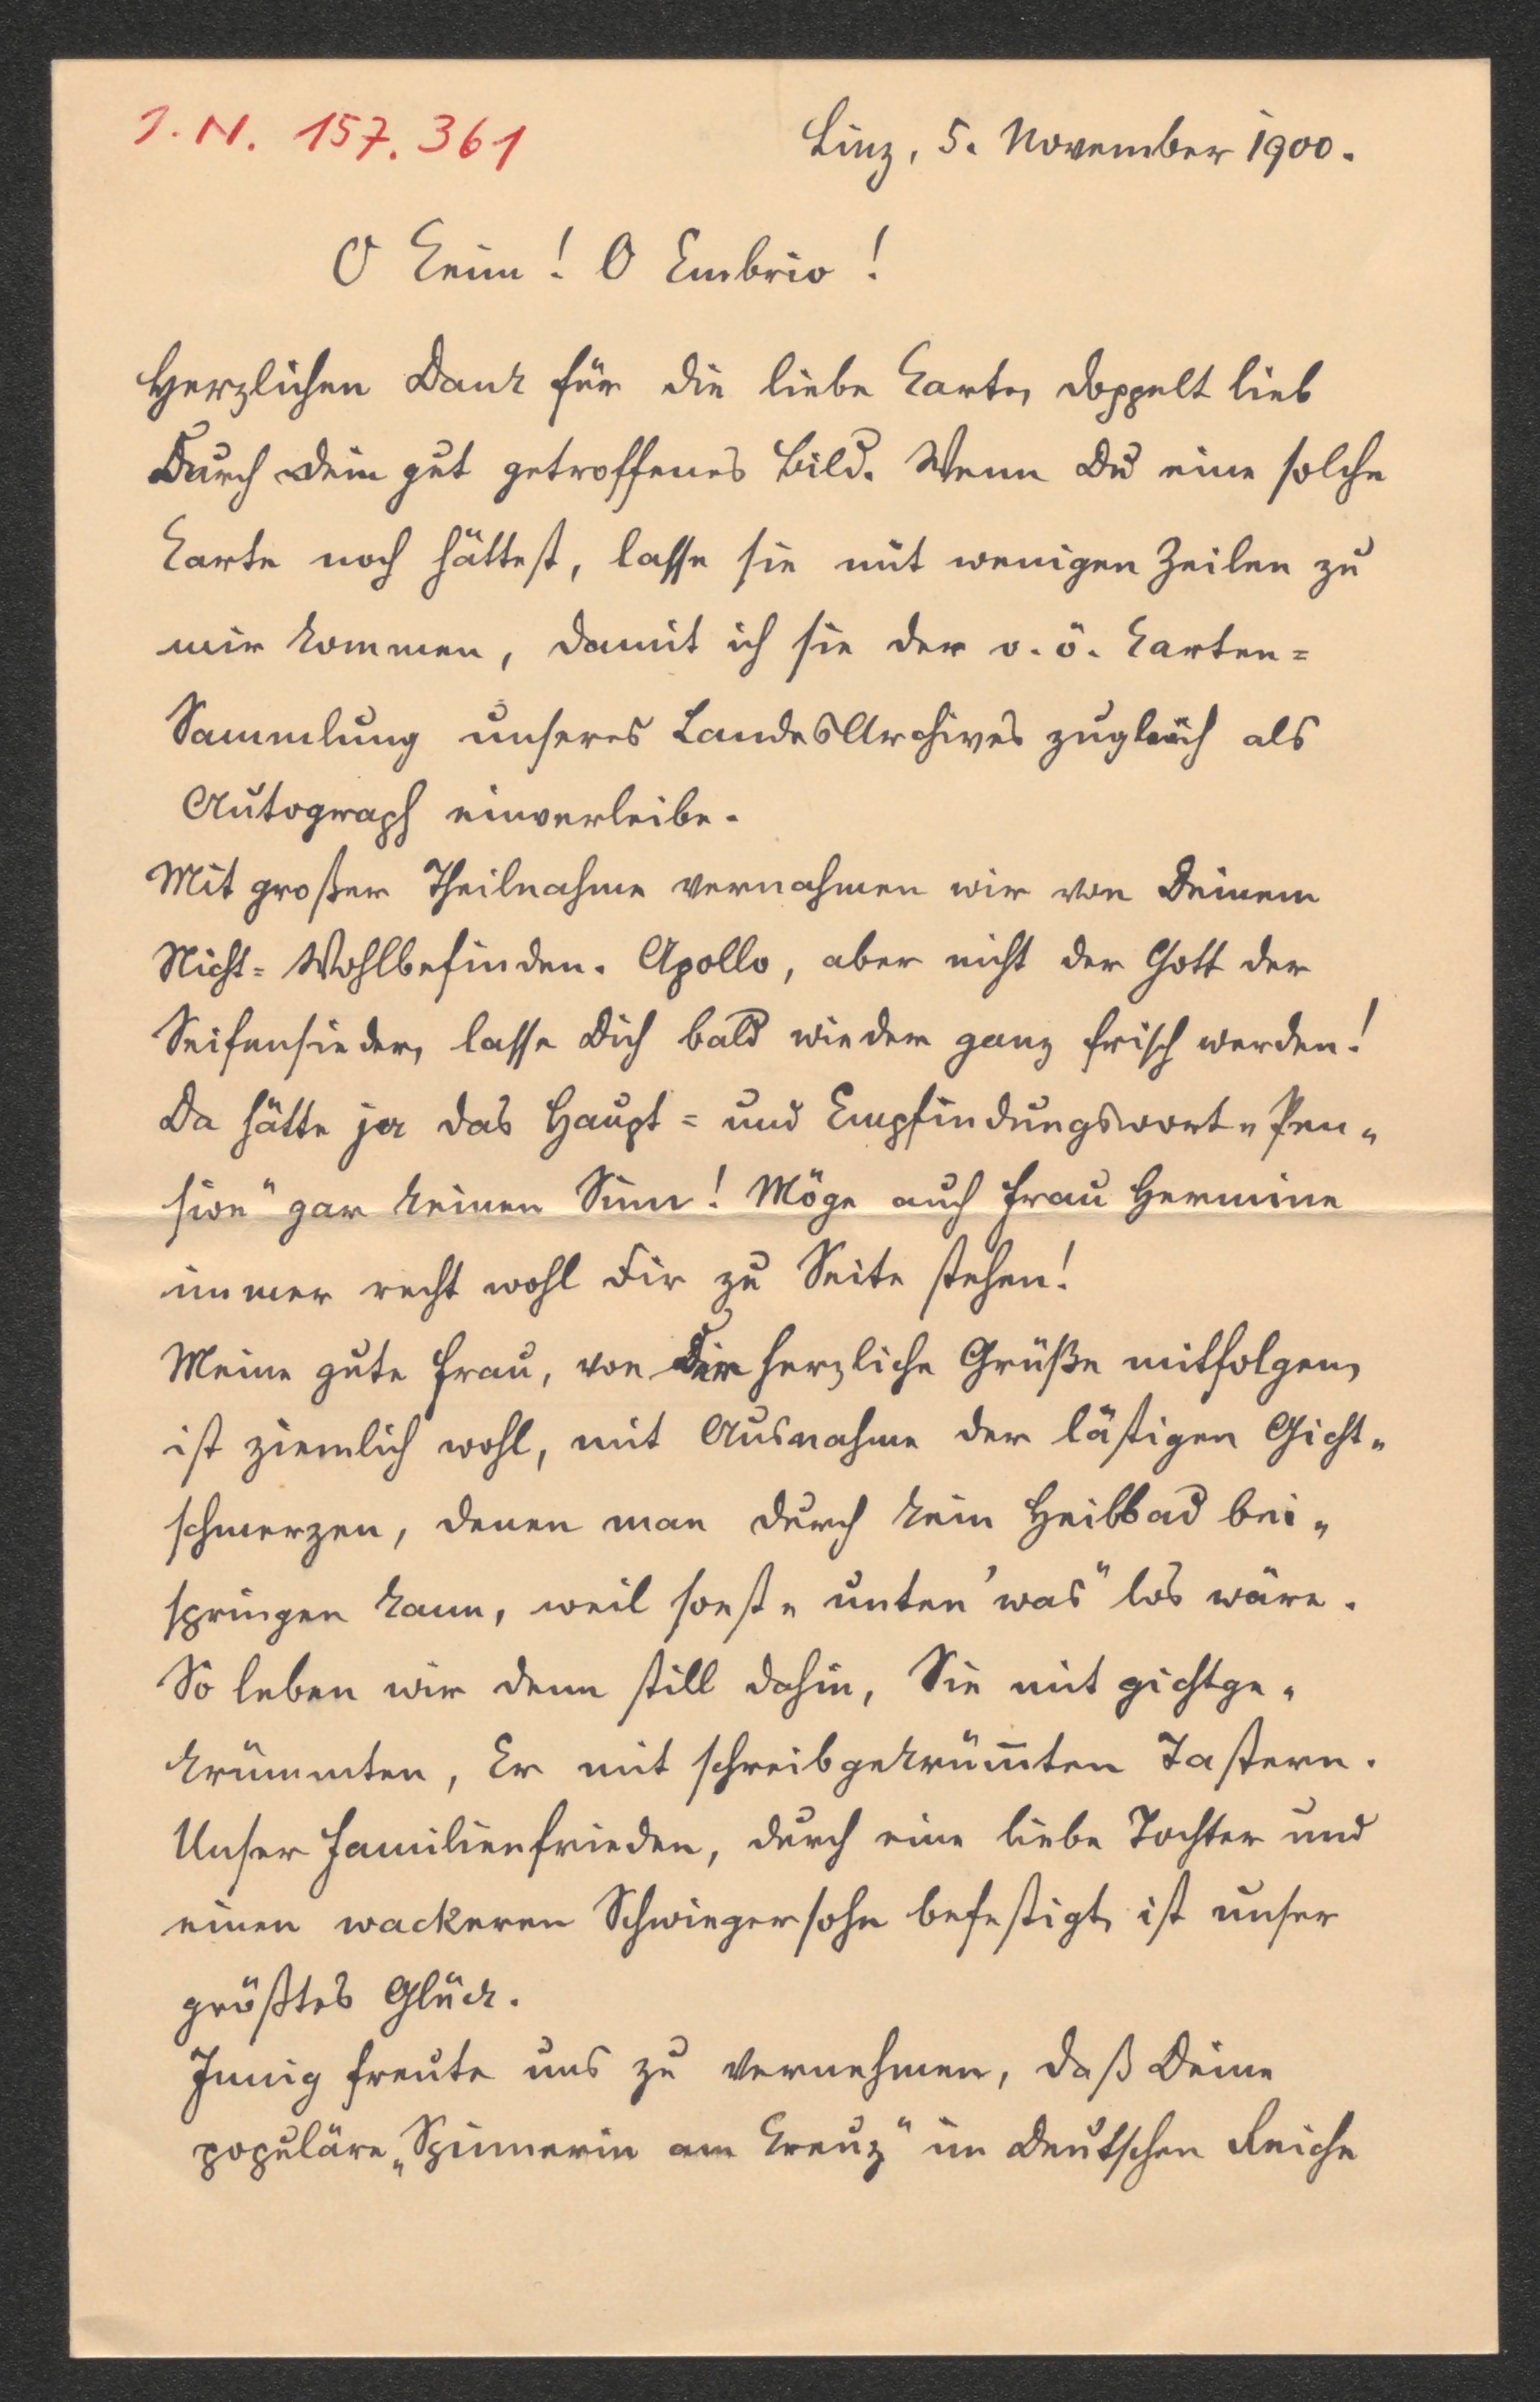 J. N. 157.361
Linz, 5. November 1900.
O Keim! O Embrio!
Herzlichen Dank für die liebe Karte, doppelt lieb
Durch Dein gut getroffenes Bild. Wenn Du eine solche
Karte noch hättest, lasse sie mit wenigen Zeilen zu
mir kommen, damit ich sie der o. ö. Karten=
Sammlung unseres LandesArchives zugleich als
Autograph einverleibe.
Mit großer Theilnahme vernahmen wir von Deinem
Nicht=Wohlbefinden. Apollo, aber nicht der Gott der
Seifensieder, lasse Dich bald wieder ganz frisch werden!
Da hätte ja das Haupt= und Empfindungswort „Pen„
sion" gar keinen Sinn! Möge auch Frau Hermine
immer recht wohl Dir zu Seite stehen!
Meine gute Frau, von Der herzliche Grüße mitfolgen,
ist ziemlich wohl, mit Ausnahme der lästigen Gicht„
schmerzen, denen man durch kein Heilbad bei„
springen kann, weil sonst „unten 'was" los wäre.
So leben wir denn still dahin, Sie mit gichtge„
krümmten, Er mit schreibgekrüm̅ten Tastern.
Unser Familienfrieden, durch eine liebe Tochter und
einen wackeren Schwiegersohn befestigt, ist unser
größtes Glück.
Innig freute uns zu vernehmen, daß Deine
populäre „Spinnerin am Kreuz" im Deutschen Reiche